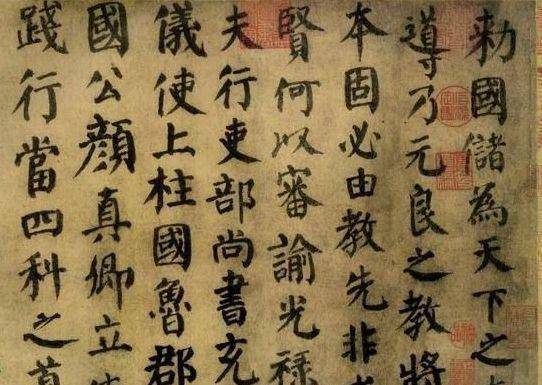 勑國儲為天下之
導乃元良之教將
本固必由教先非
賢何以審諭光祿
夫行吏部尚書充
儀使上柱國魯郡
國公顏真卿立
踐行當四科之首